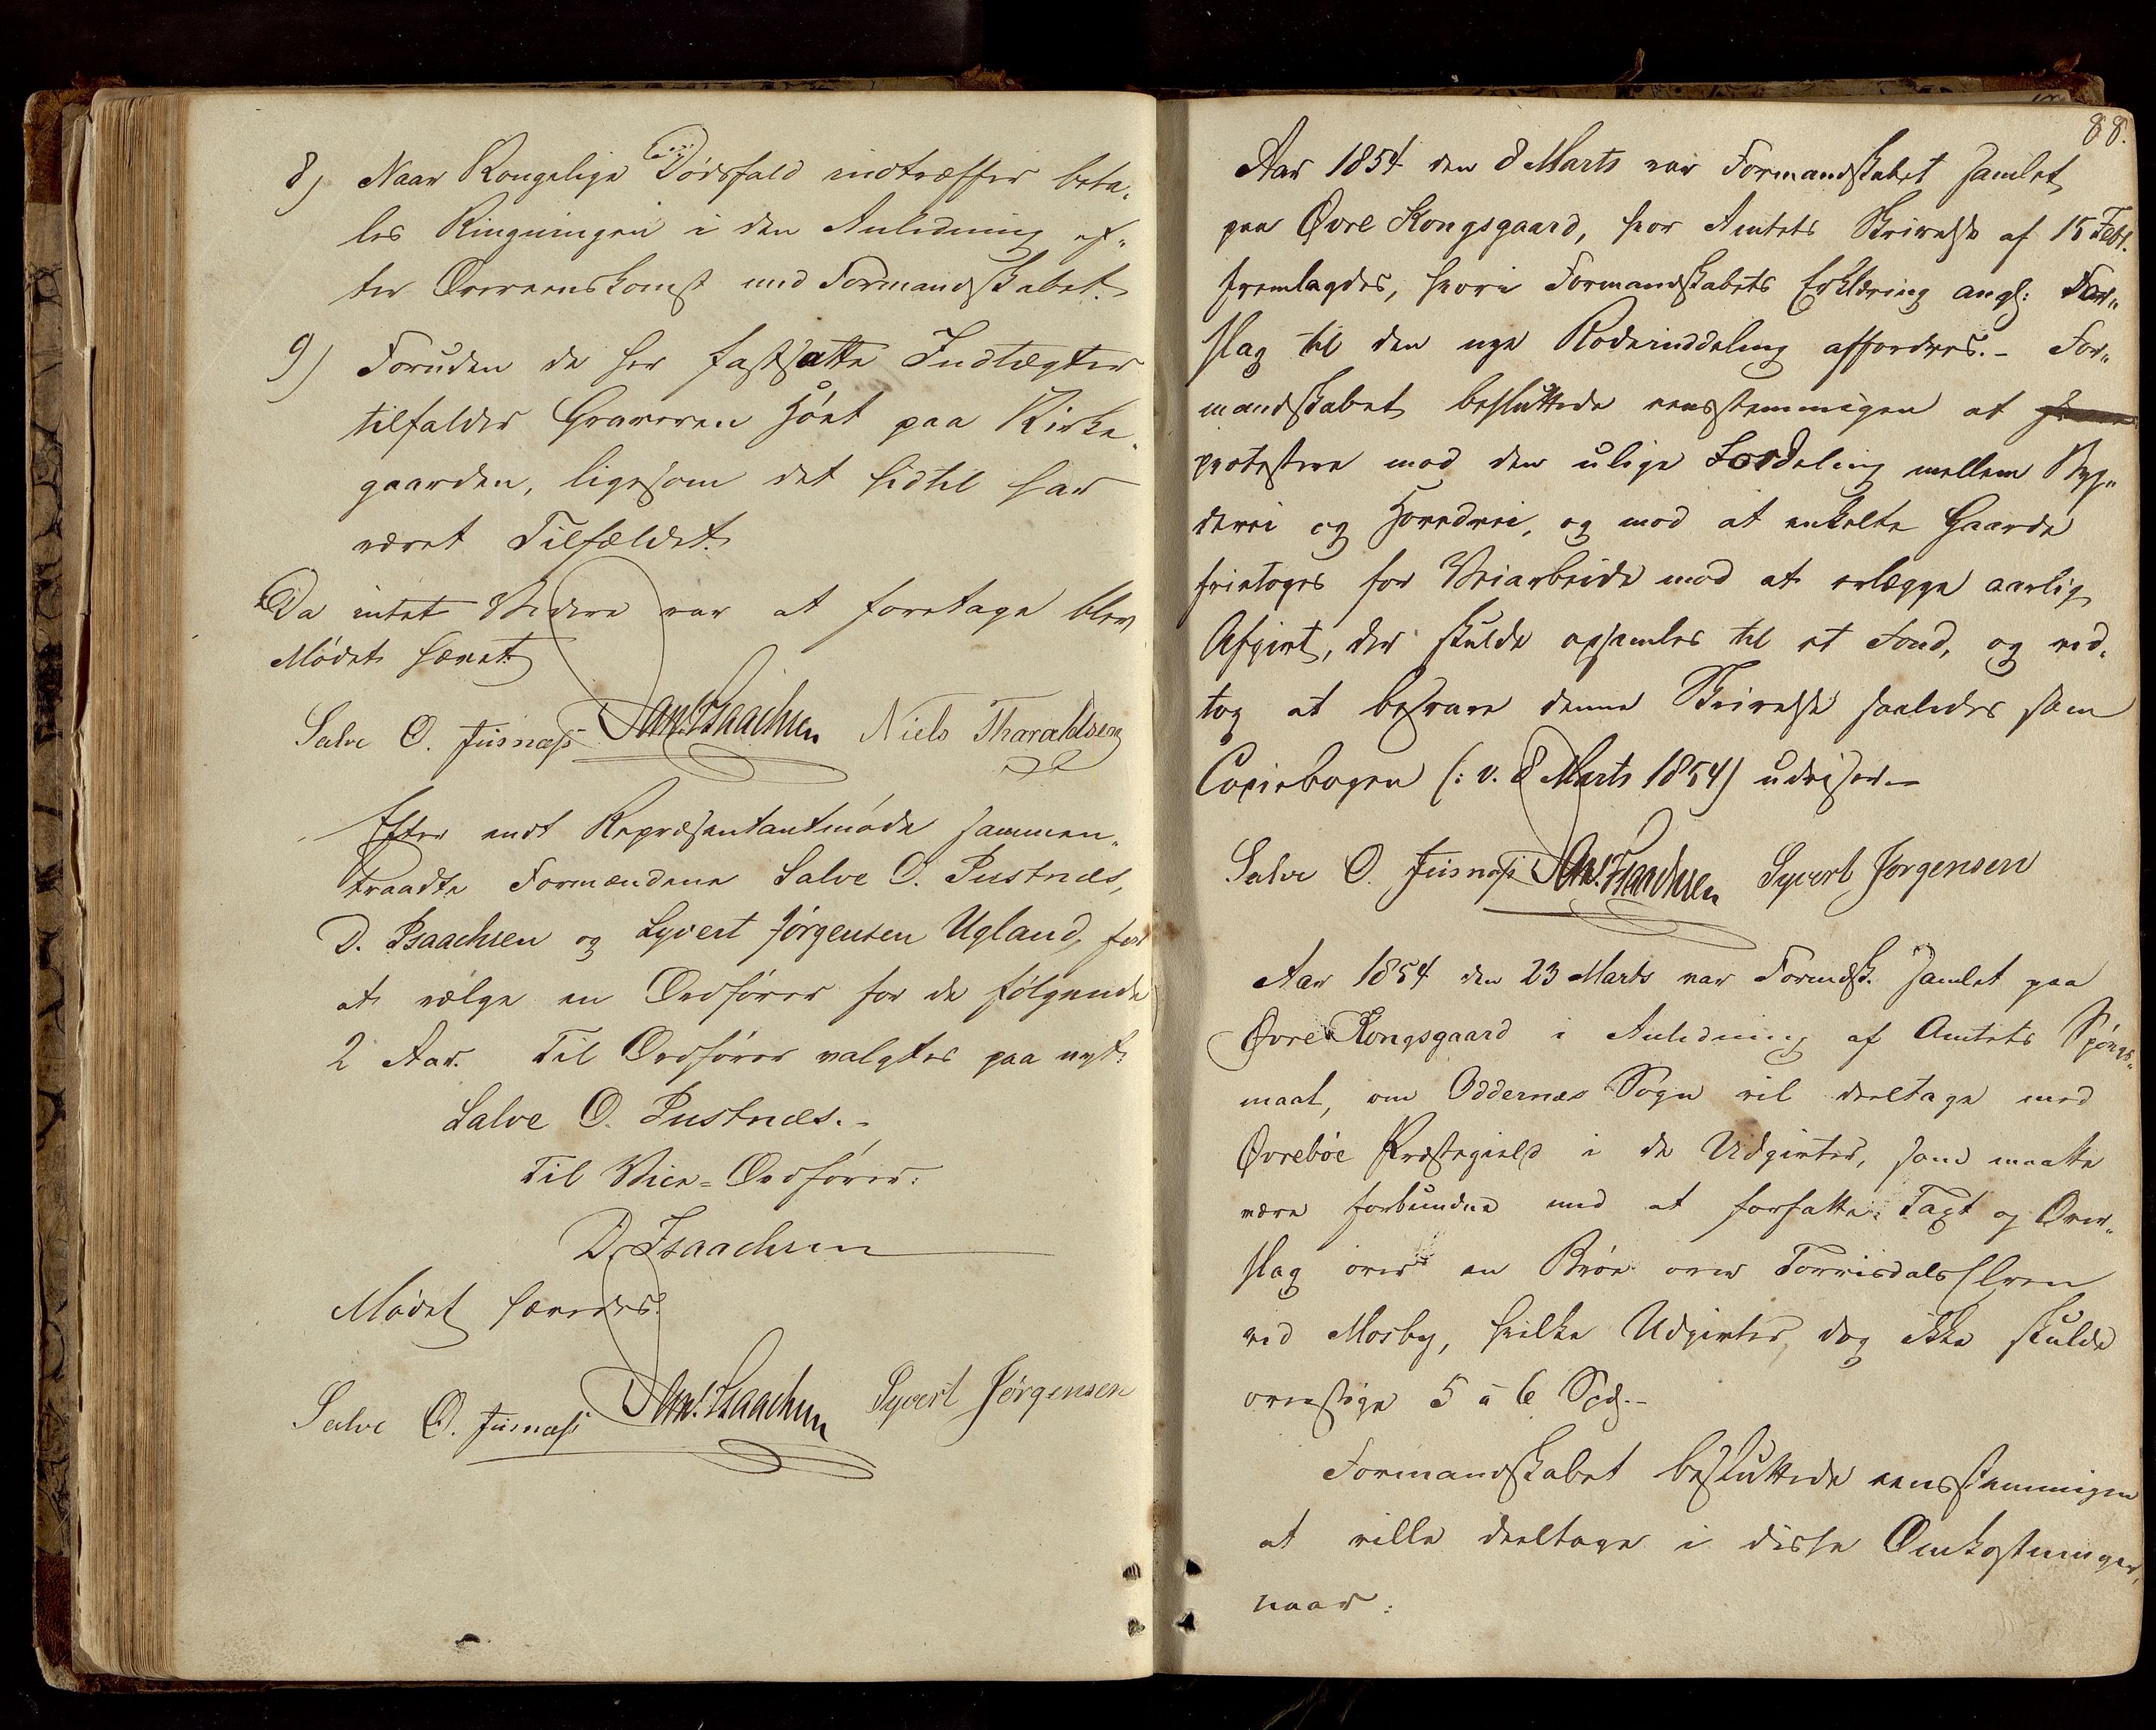 8) Naar Kongelige Dødsfald indtræffer beta„
les Ringningen i den Anledning ef„
ter Overeenskomst med Formandskabet.
9) Foruden de her fastsatte Indtægter
tilfalder Graveren Høet paa Kirke„
gaarden, ligesom det hidtil har
været Tilfældet.
Da intet Videre var at foretage blev
Mødet hævet.
Salve O. Jusnæs D Isaachsen Niels Tharaldsen
Efter endt Repræsentantmøde sammen„
traadte Formændene Salve O. Justnæs,
D. Isaachsen og Syvert Jørgensen Ugland, for
at vælge en Ordfører for de følgende
2 Aar. Til Ordfører valgtes paa nyt:
Salve O. Justnæs.-
Til Vice-Ordfører:
D. Isaachsen
Mødet hævedes.
Salve O. Jusnæs D Isaachsen Syvert Jørgensen
88.
Aar 1854 den 8 Marts var Formandskabet samlet
paa Øvre Kongsgaard, hvor Amtets Skrivelse af 15 Febr.
fremlagdes, hvori Formandskabets Erklæring angl: For„
slag til den nye Rodeinddeling affordres.- For„
mandskabet besluttede eensstemmigen at
protestere mod den ulige Fordeling mellem Byg„
devei og Hovedvei, og mod at enkelte Gaarde
fritoges for Veiarbeide mod at erlægge aarlig
Afgivt, der skulde opsamles til et Fond, og ved„
tog at besvare denne Skrivelse saaledes som
Copiebogen (: v. 8 Marts 1854) udviser.-
Salve O. Jusnæs D Isaachsen Syvert Jørgensen
Aar 1854 den 23 Marts var Formdsk. samlet paa
Øvre Kongsgaard i Anledning af Amtets Spørgs„
maal, om Oddernæs Sogn vil deeltage med
Øvrebøe Præstegield i de Udgivter, som maatte
være forbundne med at forfatte Taxt og Over„
slag over en Broe over Torrisdals Elven
ved Mosby, hvilke Udgivter dog ikke skulde
overstige 5 à 6 Spd.-
Formandskabet besluttede eensstemmigen
at ville deeltage i disse Omkostninger,
naar: